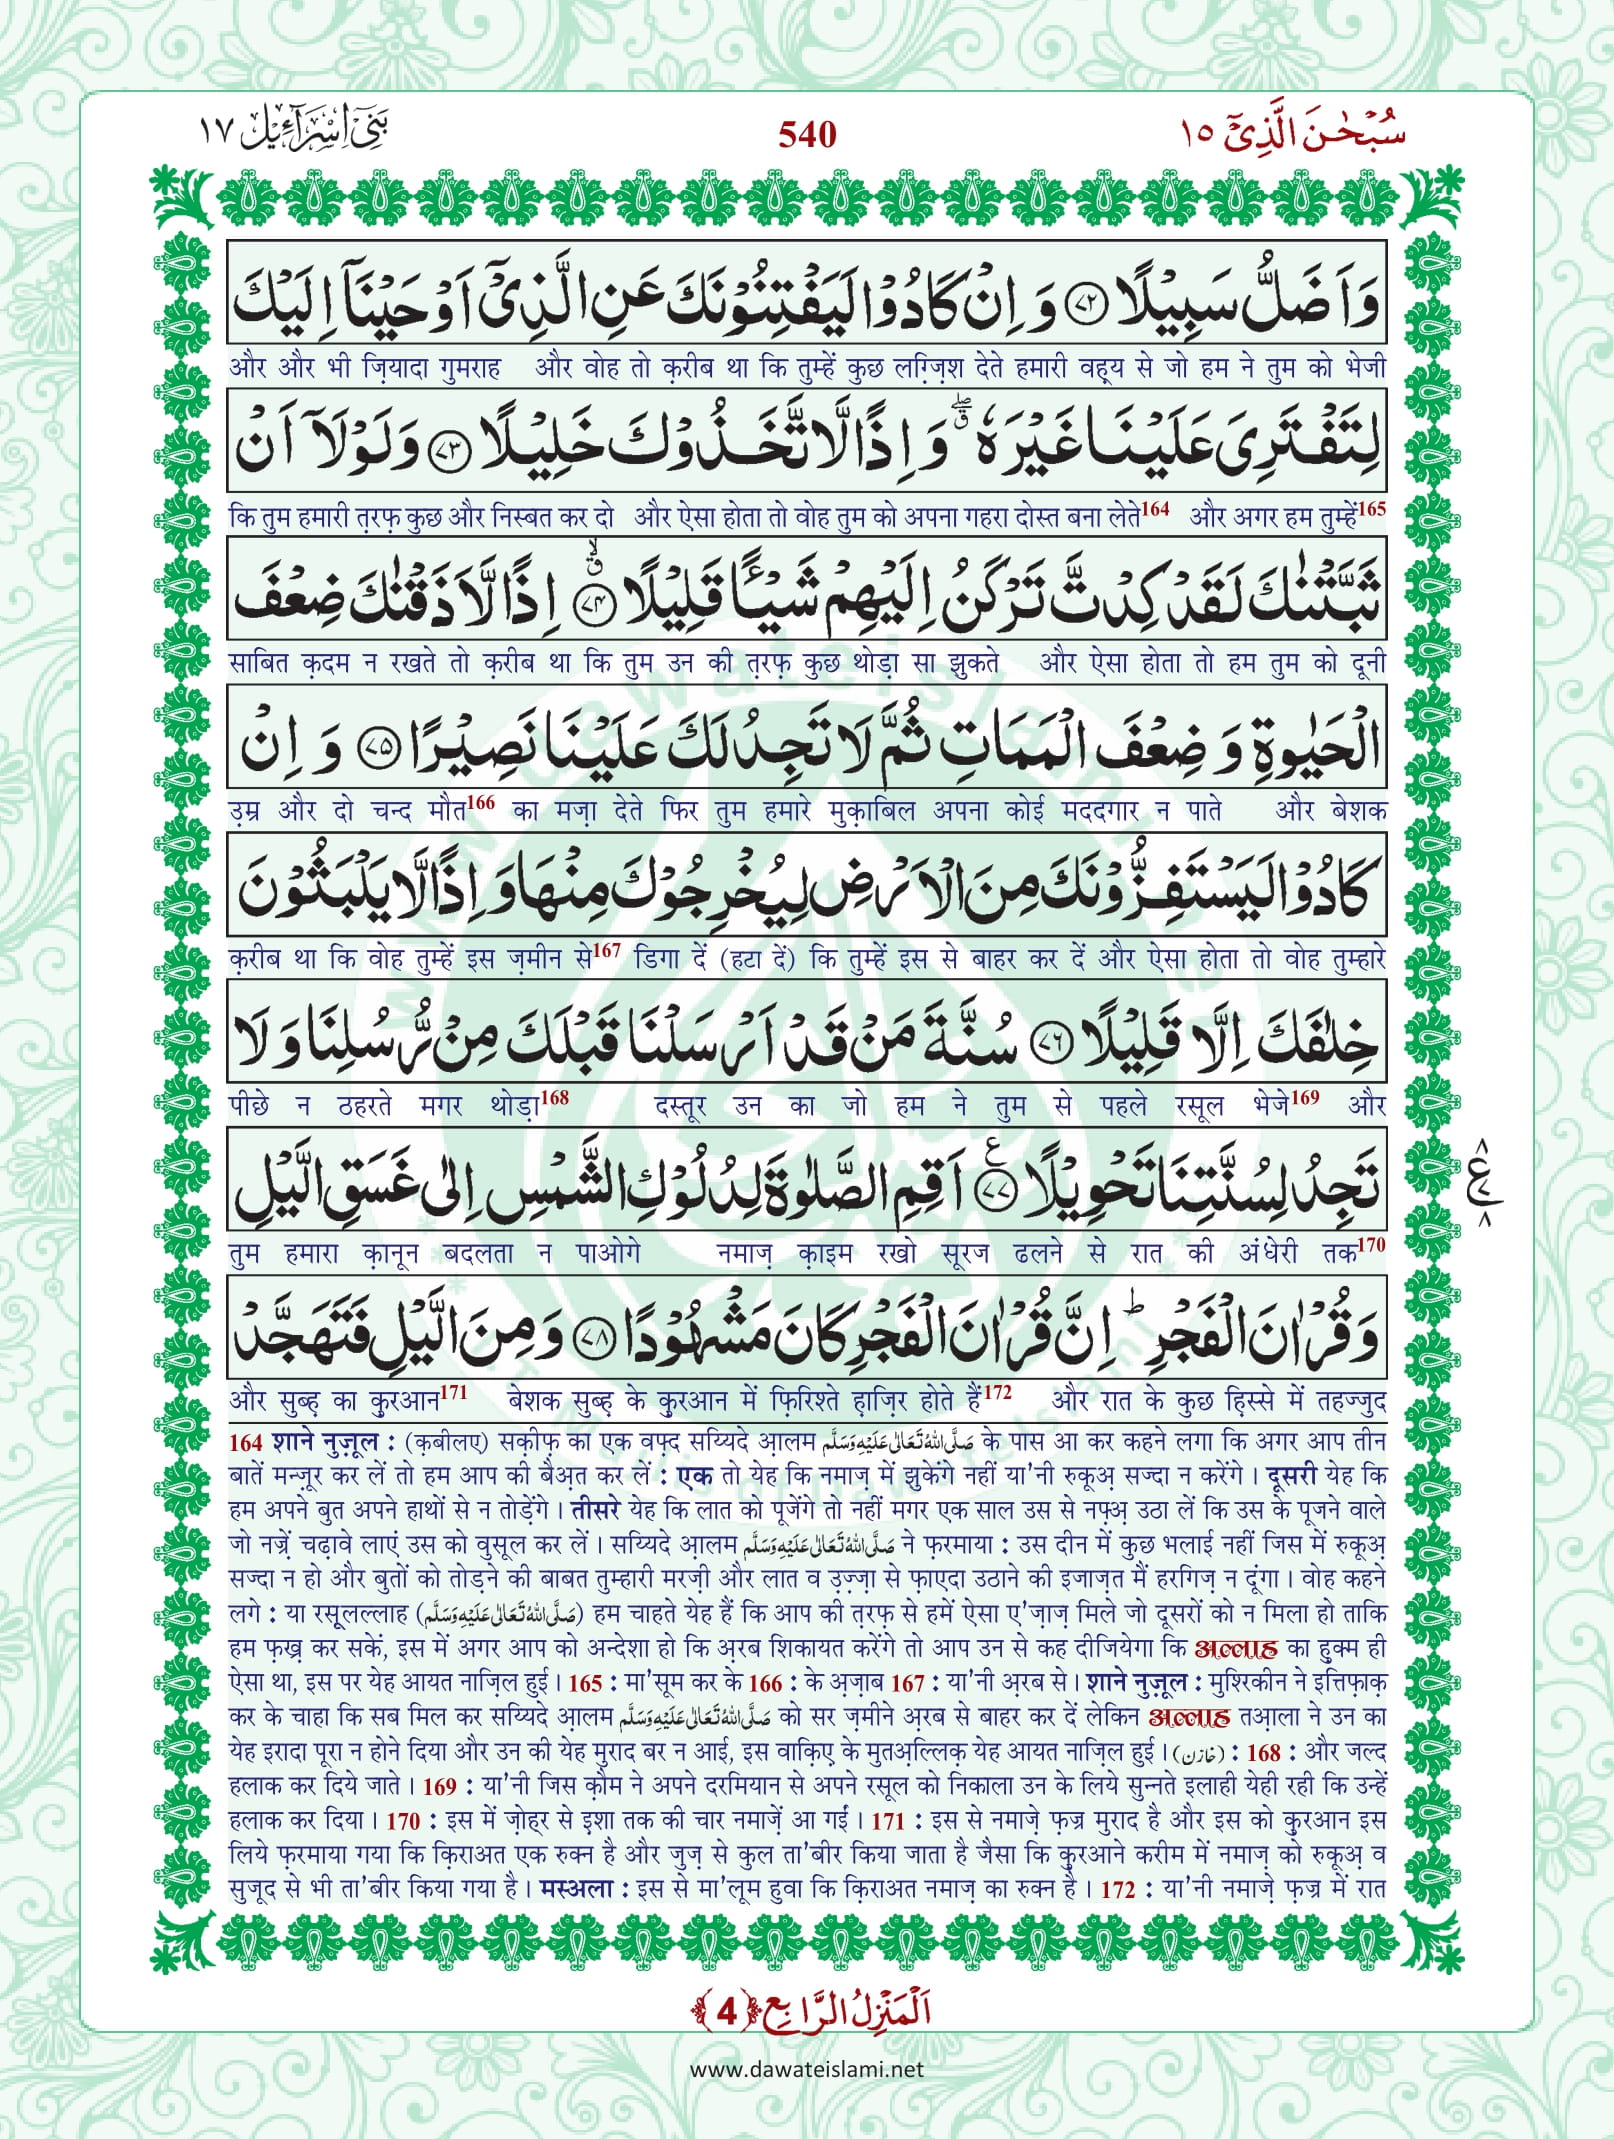 بَنِیْۤ اِسْرَآءِیْل ١٧ 540 سُبْحٰنَ الَّذِیْۤ ١٥
وَ اَضَلُّ سَبِیْلًا ﴿۷۲﴾ وَ اِنْ كَادُوْا لَیَفْتِنُوْنَكَ عَنِ الَّذِیْۤ اَوْحَیْنَاۤ اِلَیْكَ
और और भी ज़ियादा गुमराह और वोह तो क़रीब था कि तुम्हें कुछ लग़्ज़िश देते हमारी वह़्य से जो हम ने तुम को भेजी
لِتَفْتَرِیَ عَلَیْنَا غَیْرَهٗ ۖۗ وَ اِذًا لَّاتَّخَذُوْكَ خَلِیْلًا ﴿۷۳﴾ وَ لَوْلَاۤ اَنْ
कि तुम हमारी त़रफ़ कुछ और निस्बत कर दो और ऐसा होता तो वोह तुम को अपना गहरा दोस्त बना लेते164 और अगर हम तुम्हें165
ثَبَّتْنٰكَ لَقَدْ كِدْتَّ تَرْكَنُ اِلَیْهِمْ شَیْـًٔا قَلِیْلًا ﴿۷۴﴾ۗۙ اِذًا لَّاَذَقْنٰكَ ضِعْفَ
साबित क़दम न रखते तो क़रीब था कि तुम उन की त़रफ़ कुछ थोड़ा सा झुकते और ऐसा होता तो हम तुम को दूनी
الْحَیٰوةِ وَ ضِعْفَ الْمَمَاتِ ثُمَّ لَا تَجِدُ لَكَ عَلَیْنَا نَصِیْرًا ﴿۷۵﴾ وَ اِنْ
उ़म्र और दो चन्द मौत166 का मज़ा देते फिर तुम हमारे मुक़ाबिल अपना कोई मददगार न पाते और बेशक
كَادُوْا لَیَسْتَفِزُّوْنَكَ مِنَ الْاَرْضِ لِیُخْرِجُوْكَ مِنْهَا وَ اِذًا لَّا یَلْبَثُوْنَ
क़रीब था कि वोह तुम्हें इस ज़मीन से167 डिगा दें (हटा दें) कि तुम्हें इस से बाहर कर दें और ऐसा होता तो वोह तुम्हारे
خِلٰفَكَ اِلَّا قَلِیْلًا ﴿۷۶﴾ سُنَّةَ مَنْ قَدْ اَرْسَلْنَا قَبْلَكَ مِنْ رُّسُلِنَا وَ لَا
पीछे न ठहरते मगर थोड़ा168 दस्तूर उन का जो हम ने तुम से पहले रसूल भेजे169 और
تَجِدُ لِسُنَّتِنَا تَحْوِیْلًا ﴿۷۷﴾ع اَقِمِ الصَّلٰوةَ لِدُلُوْكِ الشَّمْسِ اِلٰى غَسَقِ الَّیْلِ
۸ ع ۷ ۸
तुम हमारा क़ानून बदलता न पाओगे नमाज़ क़ाइम रखो सूरज ढलने से रात की अंधेरी तक170
وَ قُرْاٰنَ الْفَجْرِ ؕ اِنَّ قُرْاٰنَ الْفَجْرِ كَانَ مَشْهُوْدًا ﴿۷۸﴾ وَ مِنَ الَّیْلِ فَتَهَجَّدْ
और सुब्ह़ का क़ुरआन171 बेशक सुब्ह़ के क़ुरआन में फ़िरिश्ते ह़ाज़िर होते हैं172 और रात के कुछ हि़स्से में तहज्जुद
164 शाने नुज़ूल : (क़बीलए) सक़ीफ़ का एक वफ़्द सय्यिदे आ़लम صَلَّى اللهُ تَعَالٰى عَلَيْهِ وَسَلَّم के पास आ कर कहने लगा कि अगर आप तीन
बातें मन्ज़ूर कर लें तो हम आप की बैअ़त कर लें : एक तो येह कि नमाज़ में झुकेंगे नहीं या'नी रुकूअ़ सज्दा न करेंगे । दूसरी येह कि
हम अपने बुत अपने हाथों से न तोड़ेंगे । तीसरे येह कि लात को पूजेंगे तो नहीं मगर एक साल उस से नफ़्अ़ उठा लें कि उस के पूजने वाले
जो नज़्रें चढ़ावे लाएं उस को वुसूल कर लें । सय्यिदे आ़लम صَلَّى اللهُ تَعَالٰى عَلَيْهِ وَسَلَّم ने फ़रमाया : उस दीन में कुछ भलाई नहीं जिस में रुकूअ़
सज्दा न हो और बुतों को तोड़ने की बाबत तुम्हारी मरज़ी और लात व उ़ज़्ज़ा से फ़ाएदा उठाने की इजाज़त मैं हरगिज़ न दूंगा । वोह कहने
लगे : या रसूलल्लाह (صَلَّى اللهُ تَعَالٰى عَلَيْهِ وَسَلَّم) हम चाहते येह हैं कि आप की त़रफ़ से हमें ऐसा ए'ज़ाज़ मिले जो दूसरों को न मिला हो ताकि
हम फ़ख़्र कर सकें, इस में अगर आप को अन्देशा हो कि अ़रब शिकायत करेंगे तो आप उन से कह दीजियेगा कि अल्लाह का हुक्म ही
ऐसा था, इस पर येह आयत नाज़िल हुई । 165 : मा'सूम कर के 166 : के अ़ज़ाब 167 : या'नी अ़रब से । शाने नुज़ूल : मुशिरकीन ने इत्तिफ़ाक़
कर के चाहा कि सब मिल कर सय्यिदे आ़लम صَلَّى اللهُ تَعَالٰى عَلَيْهِ وَسَلَّم को सर ज़मीने अ़रब से बाहर कर दें लेकिन अल्लाह तआ़ला ने उन का
येह इरादा पूरा न होने दिया और उन की येह मुराद बर न आई, इस वाक़िए के मुतअ़ल्लिक़ येह आयत नाज़िल हुई । (خازن) : 168 : और जल्द
हलाक कर दिये जाते । 169 : या'नी जिस क़ौम ने अपने दरमियान से अपने रसूल को निकाला उन के लिये सुन्नते इलाही येही रही कि उन्हें
हलाक कर दिया । 170 : इस में ज़ोह्र से इ़शा तक की चार नमाज़ें आ गईं । 171 : इस से नमाज़े फ़ज्र मुराद है और इस को क़ुरआन इस
लिये फ़रमाया गया कि क़िराअत एक रुक्न है और जुज़ से कुल ता'बीर किया जाता है जैसा कि क़ुरआने करीम में नमाज़ को रुकूअ़ व
सुजूद से भी ता'बीर किया गया है । मस्अला : इस से मा'लूम हुवा कि क़िराअत नमाज़ का रुक्न है । 172 : या'नी नमाज़े फ़ज्र में रात
اَلْمَنْزِلُ الرَّابِع ﴿4﴾
www.dawateislami.net